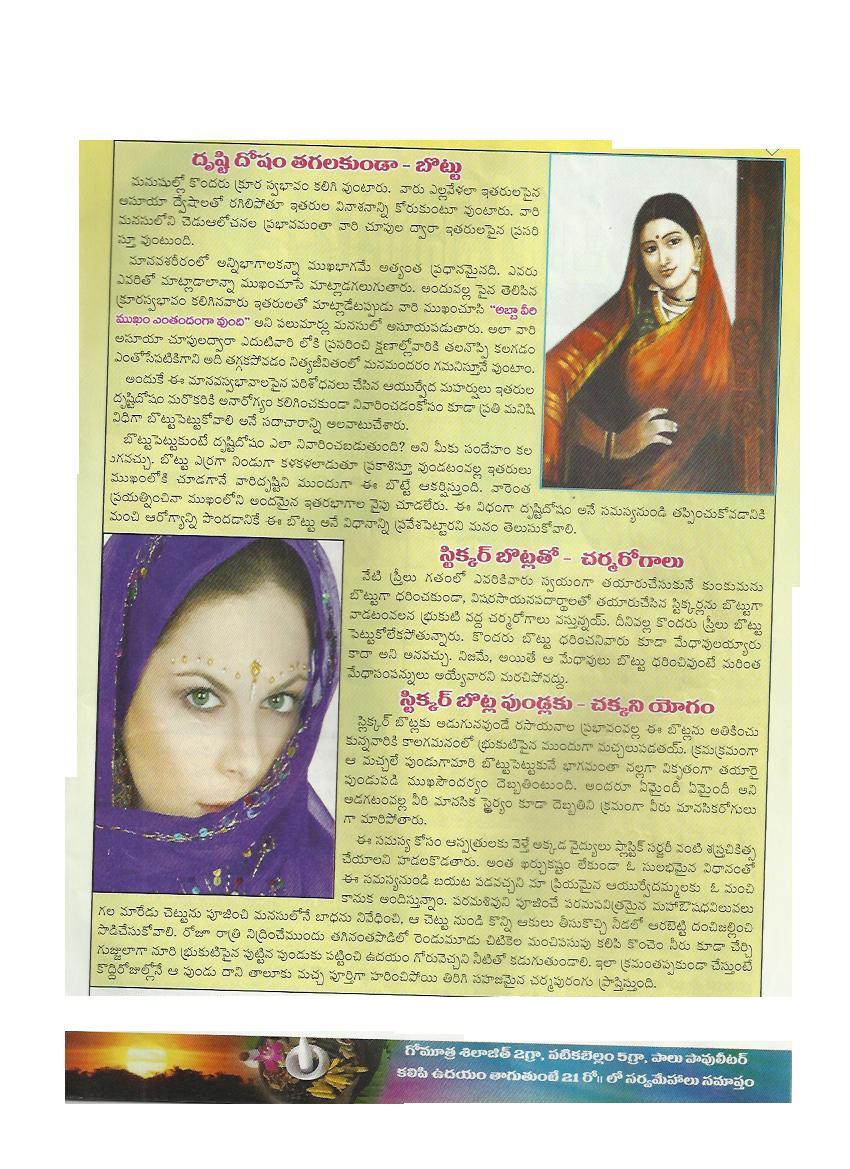 దృష్టి దోషం తగలకుండా - బొట్టు
మనుషుల్లో కొందరు క్రూర స్వభావం కలిగి వుంటారు. వారు ఎల్లవేళలా ఇతరులపైన
అసూయా ద్వేషాలతో రగిలిపోతూ ఇతరుల వినాశనాన్ని కోరుకుంటూ వుంటారు. వారి
మనసులోని చెడుఆలోచనల ప్రభావమంతా వారి చూపుల ద్వారా ఇతరులపైన ప్రసరి
స్తూ వుంటుంది.
మానవశరీరంలో అన్నిభాగాలకన్నా ముఖభాగమే అత్యంత ప్రధానమైనది. ఎవరు
ఎవరితో మాట్లాడాలన్నా ముఖంచూసే మాట్లాడగలుగుతారు. అందువల్ల పైన తెలిసిన
క్రూరస్వభావం కలిగినవారు ఇతరులతో మాట్లాడేటప్పుడు వారి ముఖంచూసి "అబ్బా వీరి
ముఖం ఎంతందంగా వుంది" అని పలుమార్లు మనసులో అసూయపడుతారు. అలా వారి
అసూయా చూపులద్వారా ఎదుటివారి లోకి ప్రసరించి క్షణాల్లోవారికి తలనొప్పి కలగడం
ఎంతోసేపటికిగాని అది తగ్గకపోవడం నిత్యజీవితంలో మనమందరం గమనిస్తూనే వుంటాం.
అందుకే ఈ మానవస్వభావాలపైన పరిశోధనలు చేసిన ఆయుర్వేద మహర్షులు ఇతరుల
దృష్టిదోషం మరొకరికి అనారోగ్యం కలిగించకుండా నివారించడంకోసం కూడా ప్రతి మనిషి
విధిగా బొట్టుపెట్టుకోవాలి అనే సదాచారాన్ని అలవాటుచేశారు.
బొట్టుపెట్టుకుంటే దృష్టిదోషం ఎలా నివారించబడుతుంది? అని మీకు సందేహం కల
గవచ్చు. బొట్టు ఎర్రగా నిండుగా కళకళలాడుతూ ప్రకాశిస్తూ వుండటంవల్ల ఇతరులు
ముఖంలోకి చూడగానే వారిదృష్టిని ముందుగా ఈ బొట్టే ఆకర్షిస్తుంది. వారెంత
ప్రయత్నించినా ముఖంలోని అందమైన ఇతరభాగాల వైపు చూడలేరు. ఈ విధంగా దృష్టిదోషం అనే సమస్యనుండి తప్పించుకోవడానికి
మంచి ఆరోగ్యాన్ని పొందడానికే ఈ బొట్టు అనే విధానాన్ని ప్రవేశపెట్టారని మనం తెలుసుకోవాలి.
స్టిక్కర్ బొట్లతో - చర్మరోగాలు
నేటి స్త్రీలు గతంలో ఎవరికివారు స్వయంగా తయారుచేసుకునే కుంకుమను
బొట్టుగా ధరించకుండా, విషరసాయనపదార్థాలతో తయారుచేసిన స్టిక్కర్లను బొట్టుగా
వాడటంవలన భ్రుకుటి వద్ద చర్మరోగాలు వస్తున్నయ్. దీనివల్ల కొందరు స్త్రీలు బొట్టు
పెట్టుకోలేకపోతున్నారు. కొందరు బొట్టు ధరించనివారు కూడా మేధావులయ్యారు
కాదా అని అనవచ్చు. నిజమే, అయితే ఆ మేధావులు బొట్టు ధరించివుంటే మరింత
మేధాసంపన్నులు అయ్యేవారని మరచిపోవద్దు.
స్టిక్కర్ బొట్ల పుండ్లకు - చక్కని యోగం
స్టిక్కర్ బొట్లకు అడుగునవుండే రసాయనాల ప్రభావంవల్ల ఈ బొట్లను అతికించు
కున్నవారికి కాలగమనంలో భ్రుకుటిపైన ముందుగా మచ్చలుపడతయ్. క్రమక్రమంగా
ఆ మచ్చలే పుండుగామారి బొట్టుపెట్టుకునే భాగమంతా నల్లగా వికృతంగా తయారై
పుండుపడి ముఖసౌందర్యం దెబ్బతింటుంది. అందరూ ఏమైందీ ఏమైందీ అని
అడగటంవల్ల వీరి మానసిక స్థైర్యం కూడా దెబ్బతిని క్రమంగా వీరు మానసికరోగులు
గా మారిపోతారు.
ఈ సమస్య కోసం ఆస్పత్రులకు వెళ్తే అక్కడ వైద్యులు ప్లాస్టిక్ సర్జరీ వంటి శస్త్రచికిత్స
చేయాలని హడలకొడతారు. అంత ఖర్చుకష్టం లేకుండా ఓ సులభమైన విధానంతో
ఈ సమస్యనుండి బయట పడవచ్చని మా ప్రియమైన ఆయుర్వేదమ్మలకు ఓ మంచి
కానుక అందిస్తున్నాం. పరమశివుని పూజించే పరమపవిత్రమైన మహాఔషధవిలువలు
గల మారేడు చెట్టును పూజించి మనసులోనే బాధను నివేదించి, ఆ చెట్టు నుండి కొన్ని ఆకులు తీసుకొచ్చి నీడలో ఆరబెట్టి దంచిజల్లించి
పొడిచేసుకోవాలి. రోజూ రాత్రి నిద్రించేముందు తగినంతపొడిలో రెండుమూడు చిటికెల మంచిపసుపు కలిపి కొంచెం నీరు కూడా చేర్చి
గుజ్జులాగా నూరి భ్రుకుటిపైన పుట్టిన పుండుకు పట్టించి ఉదయం గోరువెచ్చని నీటితో కడుగుతుండాలి. ఇలా క్రమంతప్పకుండా చేస్తుంటే
కొద్దిరోజుల్లోనే ఆ పుండు దాని తాలూకు మచ్చ పూర్తిగా హరించిపోయి తిరిగి సహజమైన చర్మపురంగు ప్రాప్తిస్తుంది.
గోమూత్ర శిలాజిత్ 2గ్రా, పటికబెల్లం 5గ్రా, పాలు పావులీటర్
కలిపి ఉదయం తాగుతుంటే 21 రో॥ లో సర్వమేహాలు సమాప్తం